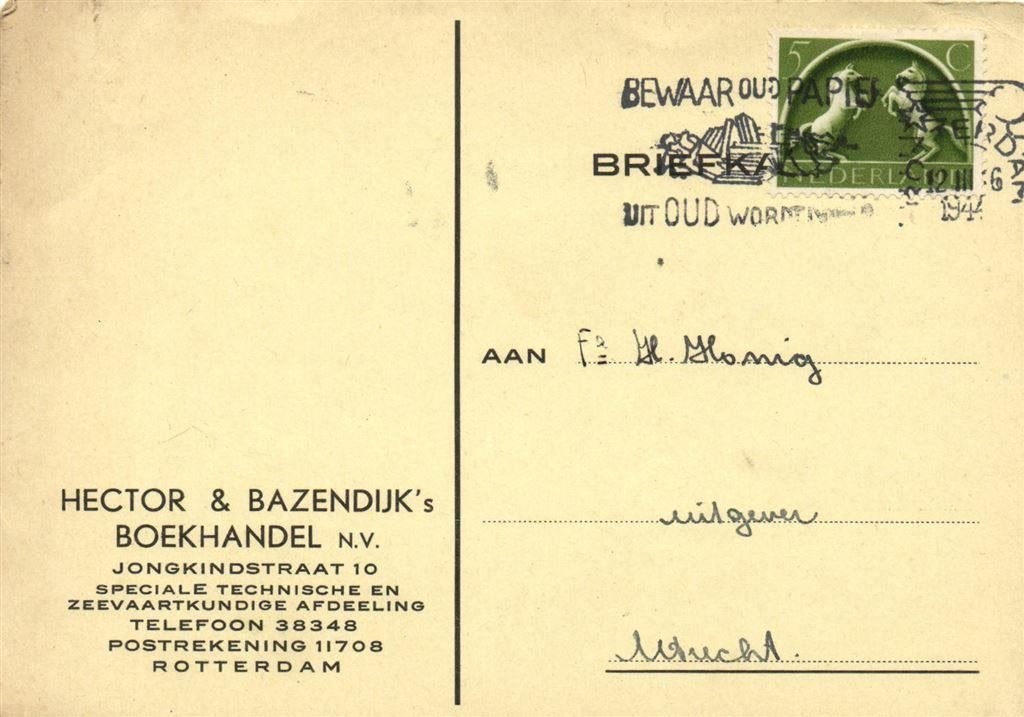 5 C
NEDERLAND
BEWAAR OUD PAPIER
BRIEFKAART
UIT OUD WORDT
12 III 6
1944
AAN Fa H. Honig
uitgever
Utrecht.
HECTOR & BAZENDIJK's
BOEKHANDEL N.V.
JONGKINDSTRAAT 10
SPECIALE TECHNISCHE EN
ZEEVAARTKUNDIGE AFDEELING
TELEFOON 38348
POSTREKENING 11708
ROTTERDAM